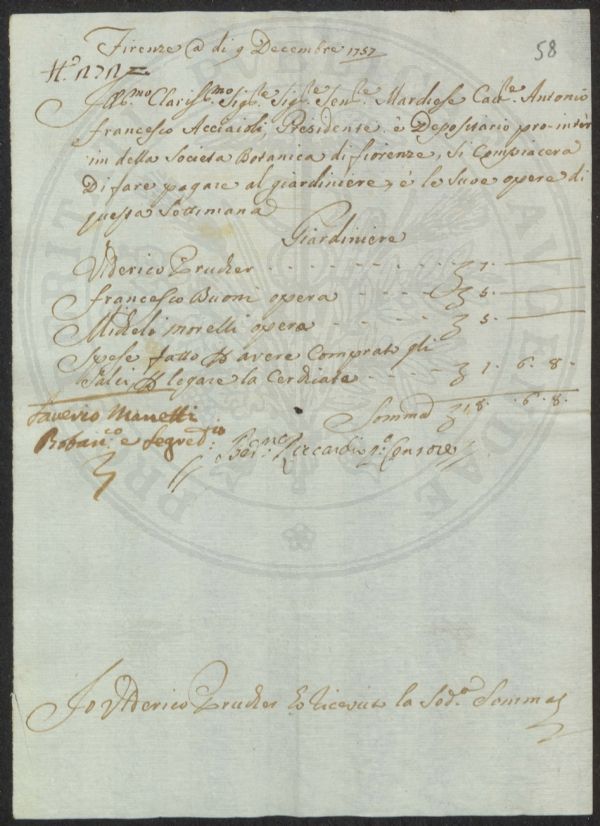 58
Firenze @ di 9 Decembre 1757
Ill:mo Clariss:mo Sig:re Sig:re Sen:re Marchese Cav:re Antonio
Francesco Acciaioli Presidente, è Depositario pro-inter
im della Societa Botanica di fiorenze, Si Compiacera
Di fare pagare al giardiniere, è le Suoe opere di
questa Settimana
Giardiniere
Ulderico Prucker 7.
Francesco Buoni opera 5.
Michele morelli opera 5.
Spese fatto p avere Comprato gli
Salci p legare la Cerchiata 1. 6. 8.
Somma 18. 6. 8.
Saverio Manetti
Botan:co e Segret:rio
Ber:no Riccardi p:o Console
Io Ulderico Prucker ho ricevuto la Sod:a Somma